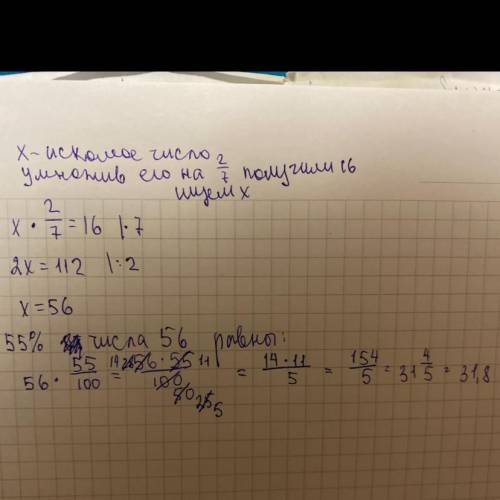 x - искомое число
умножив его на 2/7 получили 16
ищем x
x · 2/7 = 16 |·7
2x = 112 |:2
x = 56
55% числа 56 равны:
56 · 55/100 = 56·55/100 = 14·11/5 = 154/5 = 31 4/5 = 31,8